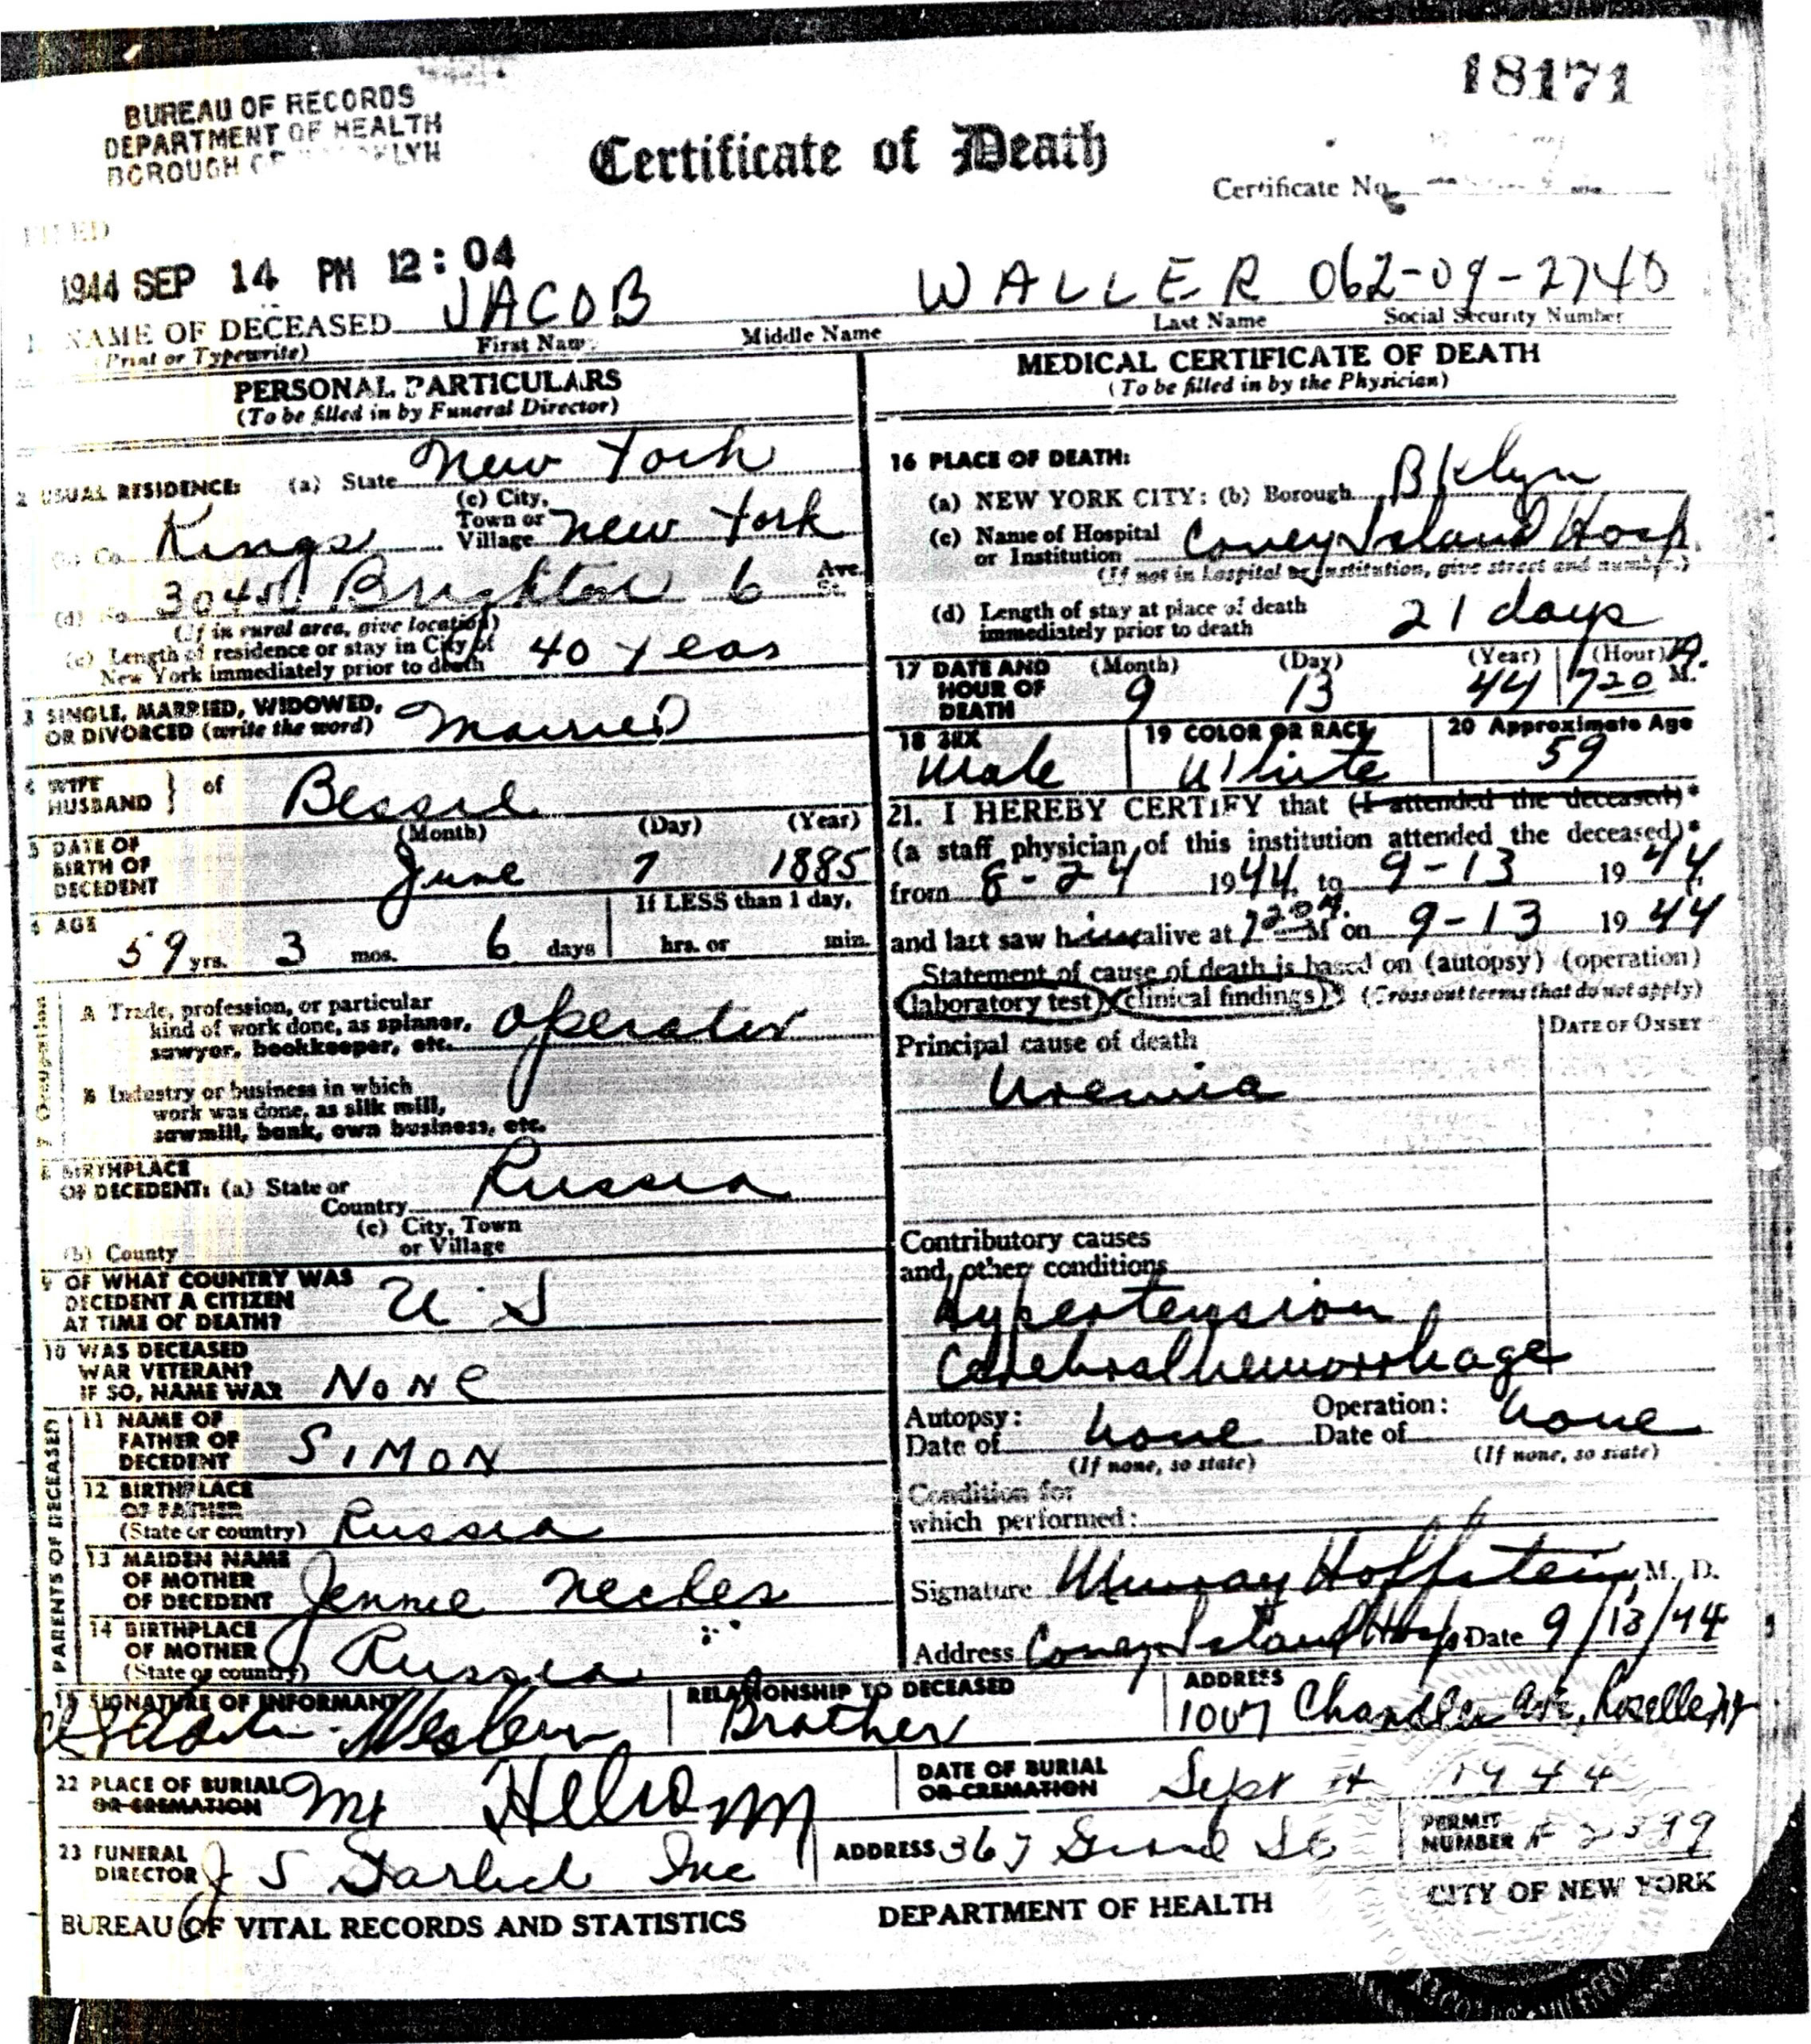 18171
BUREAU OF RECORDS
DEPARTMENT OF HEALTH
BOROUGH OF BROOKLYN
Certificate of Death
Certificate No.
FILED
1944 SEP 14 PM 12:04
JACOB WALLER 062-09-2740
1 NAME OF DECEASED First Name Middle Name Last Name Social Security Number
(Print or Typewrite)
PERSONAL PARTICULARS
(To be filled in by Funeral Director)
2 USUAL RESIDENCE: (a) State New York
(b) Co. Kings (c) City, Town or Village New York
(d) No. Brighton 6 Ave. St.
(If in rural area, give location)
(e) Length of residence or stay in City of
New York immediately prior to death 40 years
3 SINGLE, MARRIED, WIDOWED,
OR DIVORCED (write the word) Married
4 WIFE
HUSBAND } of Bessie
5 DATE OF
BIRTH OF
DECEDENT (Month) (Day) (Year)
June 7 1885
6 AGE If LESS than 1 day,
59 yrs. 3 mos. 6 days hrs. or min.
7 Occupation
A Trade, profession, or particular
kind of work done, as spinner,
sawyer, bookkeeper, etc. Operator
B Industry or business in which
work was done, as silk mill,
sawmill, bank, own business, etc.
8 BIRTHPLACE
OF DECEDENT: (a) State or
Country Russia
(c) City, Town
or Village
(b) County
9 OF WHAT COUNTRY WAS
DECEDENT A CITIZEN
AT TIME OF DEATH? U.S
10 WAS DECEASED
WAR VETERAN?
IF SO, NAME WAR None
PARENTS OF DECEASED
11 NAME OF
FATHER OF
DECEDENT SIMON
12 BIRTHPLACE
OF FATHER
(State or country) Russia
13 MAIDEN NAME
OF MOTHER
OF DECEDENT Jennie
14 BIRTHPLACE
OF MOTHER
(State or country) Russia
MEDICAL CERTIFICATE OF DEATH
(To be filled in by the Physician)
16 PLACE OF DEATH:
(a) NEW YORK CITY: (b) Borough Bklyn
(c) Name of Hospital
or Institution Coney Island Hosp.
(If not in hospital or institution, give street and number.)
(d) Length of stay at place of death
immediately prior to death 21 days
17 DATE AND
HOUR OF
DEATH (Month) (Day) (Year) (Hour) A.
9 13 44 7 20 M.
18 SEX 19 COLOR OR RACE 20 Approximate Age
Male White 59
21. I HEREBY CERTIFY that (I attended the deceased)*
(a staff physician of this institution attended the deceased)*
from 8-24 1944, to 9-13 1944,
and last saw him alive at 7 20 A. M on 9-13 1944
Statement of cause of death is based on (autopsy) (operation)
(laboratory test) (clinical findings)* (Cross out terms that do not apply)
Principal cause of death DATE OF ONSET
Uremia
Contributory causes
and other conditions
Hypertension
Cerebral hemorrhage
Autopsy: Operation:
Date of none Date of none
(If none, so state) (If none, so state)
Condition for
which performed:
Signature Murray Hoffstein, M. D.
Address Coney Island Hosp Date 9/13/44
15 SIGNATURE OF INFORMANT RELATIONSHIP TO DECEASED ADDRESS
Brother 1007 Chandler Ave, Roselle NJ
22 PLACE OF BURIAL
OR CREMATION Mt Hebron DATE OF BURIAL
OR CREMATION Sept 14 1944
23 FUNERAL
DIRECTOR J S Garlick Inc ADDRESS 367 Grand St PERMIT
NUMBER 2399
BUREAU OF VITAL RECORDS AND STATISTICS DEPARTMENT OF HEALTH CITY OF NEW YORK